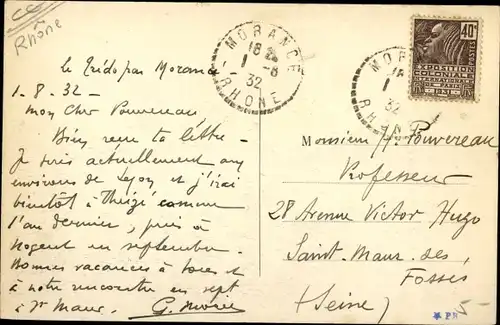 Rhône
Le Trédo par Morancé
1-8-32-
mon cher Pouvereau
Bien reçu ta lettre-
Je suis actuellement aux
environs de Lyon et j'irai
bientôt à Theizé comme
l'an dernier, puis à
Nogent en septembre.
Bonnes vacances à tous et
à notre rencontre en sept
à St Maur.
MORANCÉ
18
1-8
32
RHONE
MORANCÉ
1
32
RHONE
40c
POSTES
EXPOSITION
COLONIALE
INTERNATIONALE
PARIS 1931
Monsieur Pouvereau
Professeur
28 Avenue Victor Hugo
Saint-Maur-des-
Fossés
(Seine)